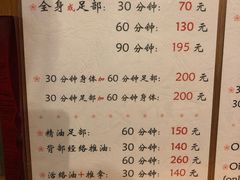 *全身或足部： 30 分钟： 70 元
60 分钟： 130 元
90 分钟： 195 元
*30 分钟身体加 60 分钟足部： 200 元
*30 分钟足部加 60 分钟身体： 200 元
*精油足部： 60 分钟： 150 元
*背部经络推油： 30 分钟： 140 元
60 分钟： 260 元
*活络油+推拿： 30 分钟： 140 元
Oi
(onl